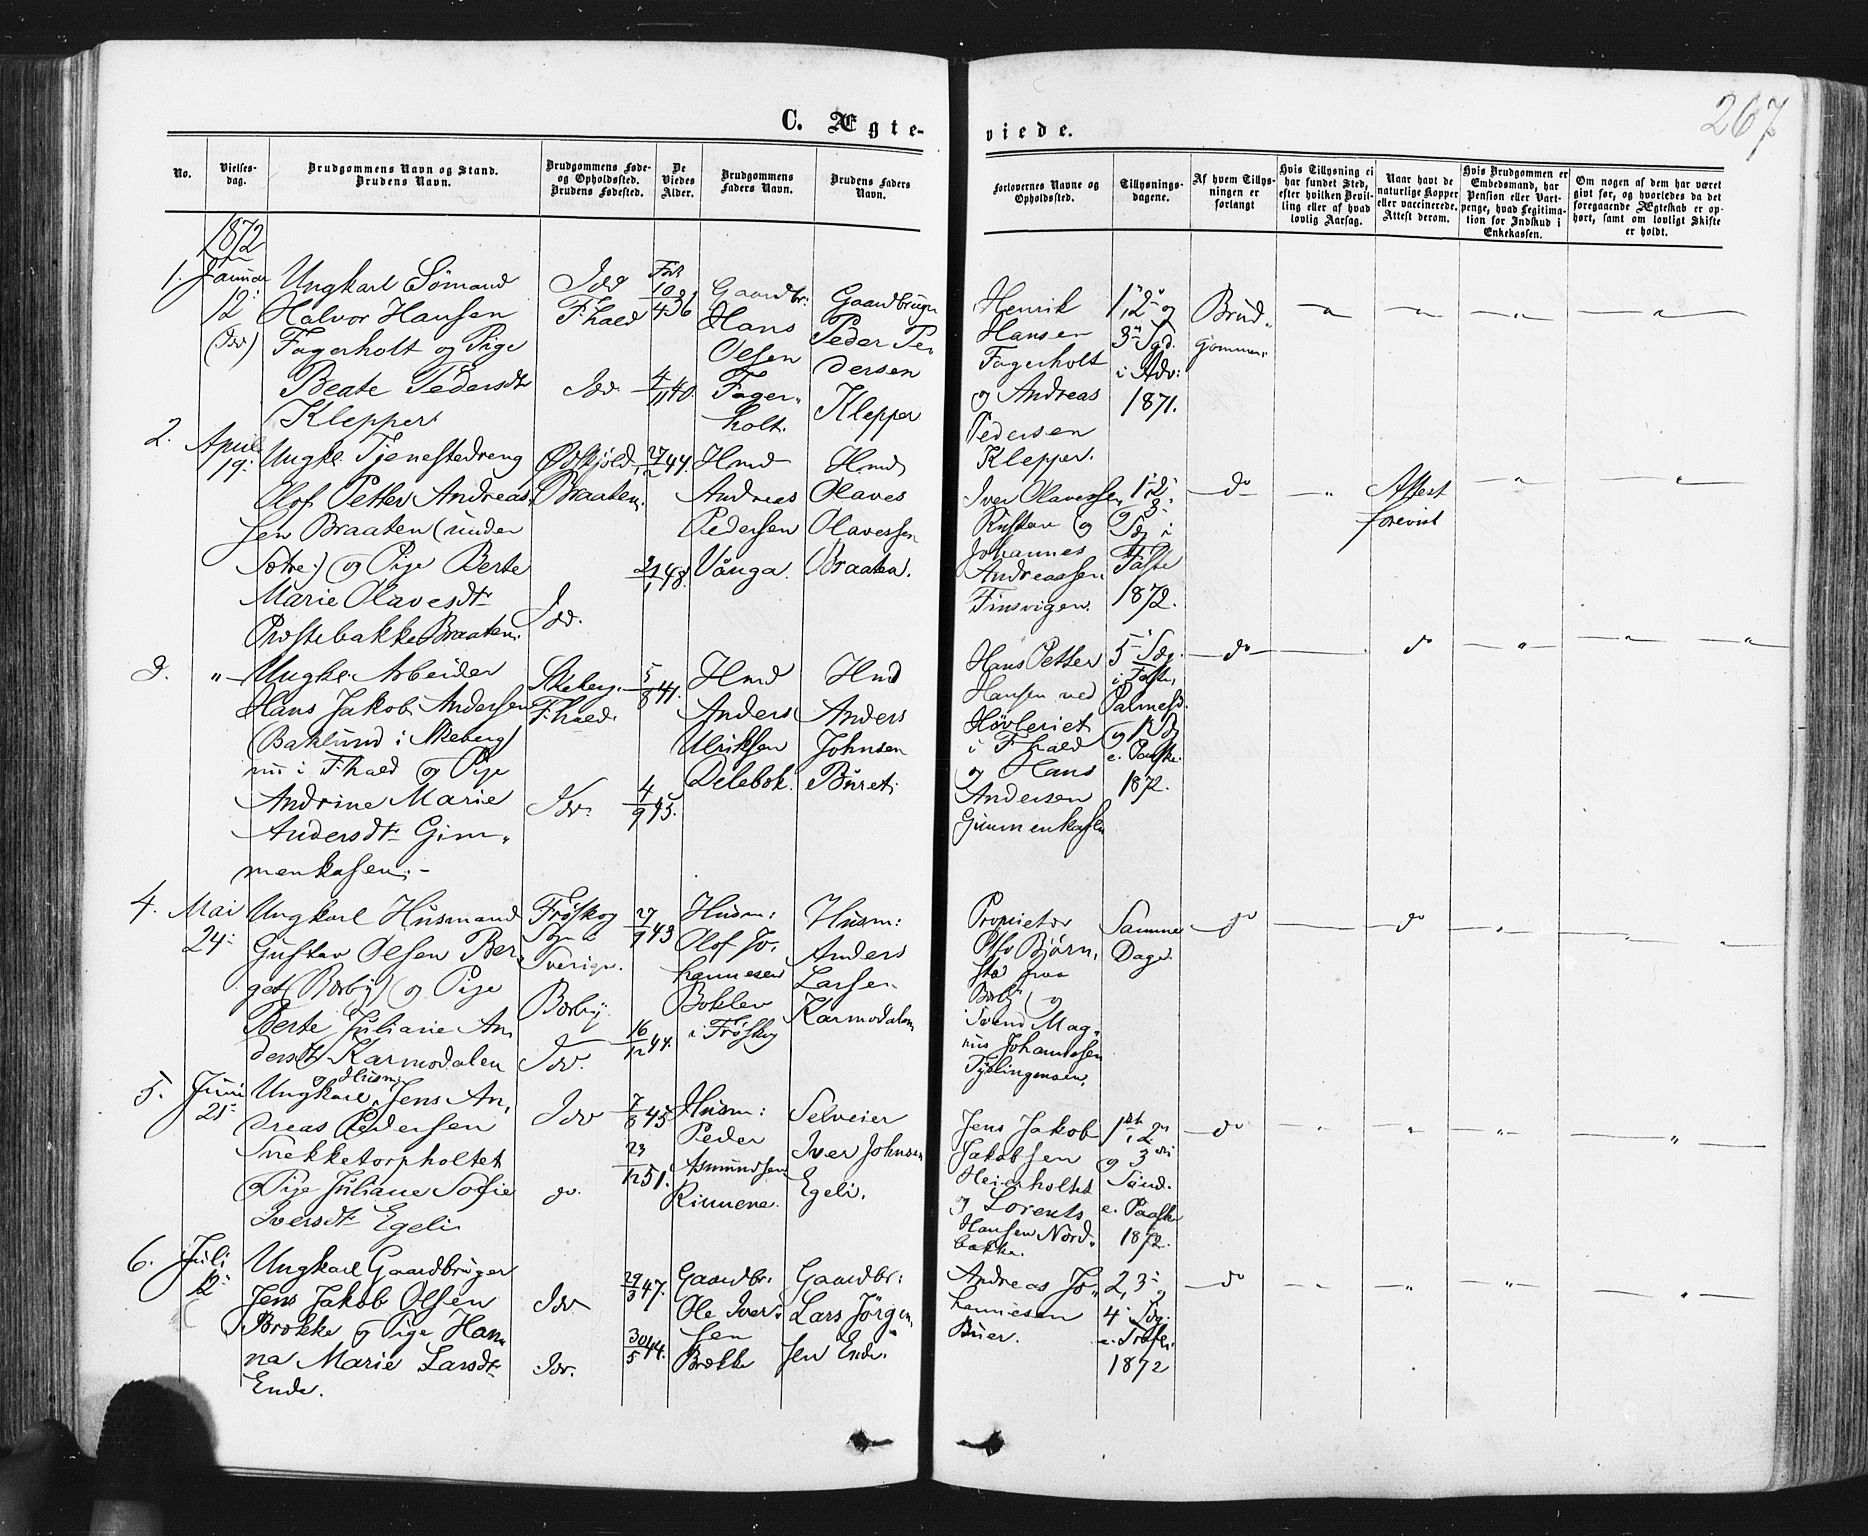 267
C. Ægte-
viede.
No.
Vielses-
dag.
Brudgommens Navn og Stand.
Brudens Navn.
Brudgommens Føde-
og Opholdssted.
Brudens Fødested.
De
Viedes
Alder.
Brudgommens
Faders Navn.
Brudens Faders
Navn.
Forlovernes Navne og
Opholdssted.
Tillysnings-
dagene.
Af hvem Tillys-
ningen er
forlangt
Hvis Tillysning ei
har fundet Sted,
efter hvilken Bevil-
ling eller af hvad
lovlig Aarsag.
Naar havt de
naturlige Kopper
eller vaccinerede.
Attest derom.
Hvis Brudgommen er
Embedsmand, har
Pension eller Vart-
penge, hvad Legitima-
tion for Indskud i
Enkekassen.
Om nogen af dem har været
givt før, og hvorledes da det
foregaaende Ægteskab er op-
hørt, samt om lovligt Skifte
er holdt.
1872
1.
Januar
12
(Idd)
Ungkarl Sømand
Halvor Hansen
Fagerholt og Pige
Beate Pedersdt
Klepper
Idd
F.hald
Idd
10/4 36
4/11 40.
Gaardbr:
Hans
Olsen
Fager-
holt.
Gaardbruger
Peder Pe
dersen
Klepper
Henrik
Hansen
Fagerholt
og Andreas
Pedersen
Klepper.
1, 2 og
3 Sød.
i Adv:
1871.
Brud-
gommen
2.
April
19.
Ungk. Tjenestedreng
Olof Petter Andreas-
sen Braaten (under
Sotre) og Pige Berte
Marie Olavesdt
Præstebakke Braaten.
Ødskjold,
Braaten.
Idd.
27/2 44.
21/1 48.
Hmd
Andreas
Pedersen
Vånga.
Hmd
Olaves
Olavessen
Braaten.
Iver Olavessen
og
Johannes
Andreassen
Finsvigen.
1, 2
og 3
Sdg i
Faste
1872.
do
Attest
forevist
3.
"
Ungk. Arbeider
Hans Jakob Andersen
(Baklund i Skeberg)
nu i F.hald og Pige
Andrine Marie
Andersdt Gim-
menkasen.
Skeberg.
F.hald.
Idd.
5/8 41.
4/9 45.
Hmd
Anders
Ulriksen
Delebok.
Hmd
Anders
Johnsen
Buret.
Hans Petter
Hansen ved
Høvleriet
i F.hald
og Hans
Andersen
Gimmenkasen
5 Sdg
i Faste,
Palmesd.
og 1 Sdg
e. Paaske
1872.
do
do
4.
Mai
24
Ungkarl Husmand
Gustav Olsen Ber-
get (Børby) og Pige
Berte Juliane An
dersdt Karmodalen
Frøskog
Sogn i
Sverige.
Børby.
Idd.
27/9 43
16/12 44.
Husm:
Olof Jo-
hannesen
Bokler
i Frøskog
Husm:
Anders
Larsen
Karmodalen
Proprietær
Otto Bjørn-
sta paa
Børby og
Svend Mag-
nus Johannesen
Samme
Dage
do
do
5.
Juni
21
Ungkarl og Husm: Jens An-
dreas Pedersen
Snekketorpholtet
og Pige Juliane Sofie
Iversdt Egeli
Idd
do.
7/6 45
23/12 51.
Husm:
Peder
Asmundsen
Rinnene.
Selveier
Iver Johnsen
Egeli.
Jens Jakob
Jakobsen
Heierholtet
og Lorents
Hansen Nord-
bakke.
1st, 2n
og 3di
Sønd.
e. Paaske
1872.
do
6.
Juli
12
Ungkarl Gaardbruger
Jens Jakob Olsen
Brække og Pige Han
na Marie Larsdt
Ende.
Idd
Idd.
29/3 47.
30/5 44.
Gaardbr:
Ole Iver-
sen
Brække
Gaardbr:
Lars Jörgen
sen Ende.
Andreas Jo-
hannesen
Buer.
2, 3 og
4 Sdg.
e. Trefo.
1872
do